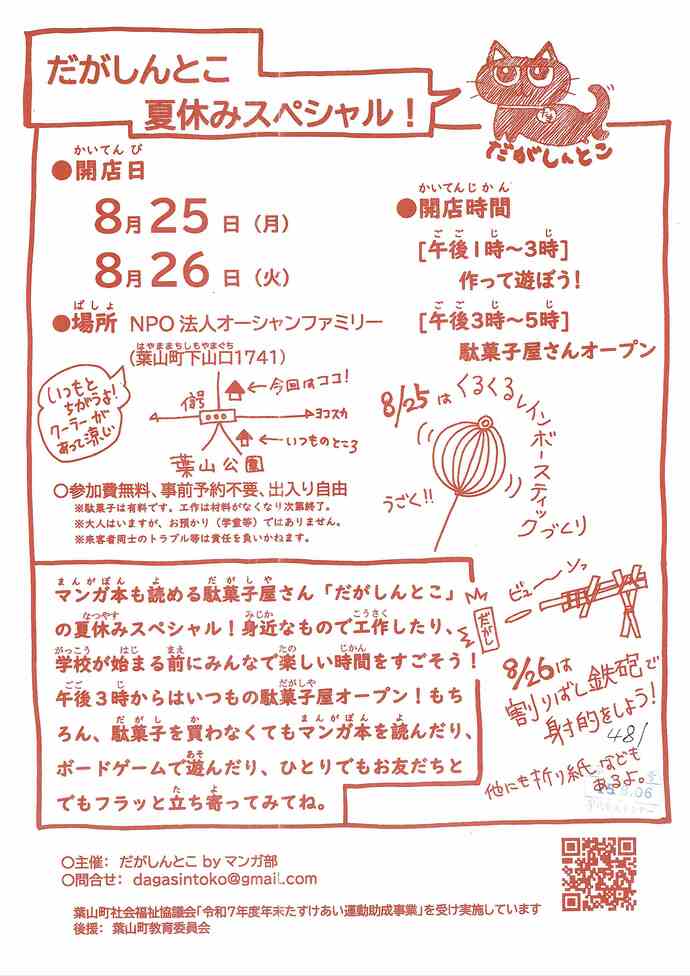 だがしんとこ
夏休みスペシャル！
だがしんとこ
かいてんび
●開店日
8月25日（月）
8月26日（火）
かいてんじかん
●開店時間
ごご じ じ
[午後1時～3時]
作って遊ぼう！
ごご じ じ
[午後3時～5時]
駄菓子屋さんオープン
ばしょ
●場所 NPO法人オーシャンファミリー
はやままちしもやまぐち
（葉山町下山口1741）
いつもと
ちがうよ！
クーラーが
あって涼しい
信号
←今回はココ！
ヨコスカ
←いつものところ
葉山公園
〇参加費無料、事前予約不要、出入り自由
※駄菓子は有料です。工作は材料がなくなり次第終了。
※大人はいますが、お預かり（学童等）ではありません。
※来客者同士のトラブル等は責任を負いかねます。
8/25は
くるくるレインボースティックづくり
うごく!!
まんがぼん よ だがしや
マンガ本も読める駄菓子屋さん「だがしんとこ」
なつやす みじか こうさく
の夏休みスペシャル！身近なもので工作したり、
がっこう はじ まえ たの じかん
学校が始まる前にみんなで楽しい時間をすごそう！
ごご じ だがしや
午後3時からはいつもの駄菓子屋オープン！もち
だがし か まんがぼん よ
ろん、駄菓子を買わなくてもマンガ本を読んだり、
あそ
ボードゲームで遊んだり、ひとりでもお友だちと
た よ
でもフラッと立ち寄ってみてね。
だがし
ビューン
8/26は
割りばし鉄砲で
射的をしよう！
481
他にも折り紙なども
あるよ。
〇主催： だがしんとこ by マンガ部
〇問合せ： dagasintoko@gmail.com
葉山町社会福祉協議会「令和7年度年末たすけあい運動助成事業」を受け実施しています
後援： 葉山町教育委員会